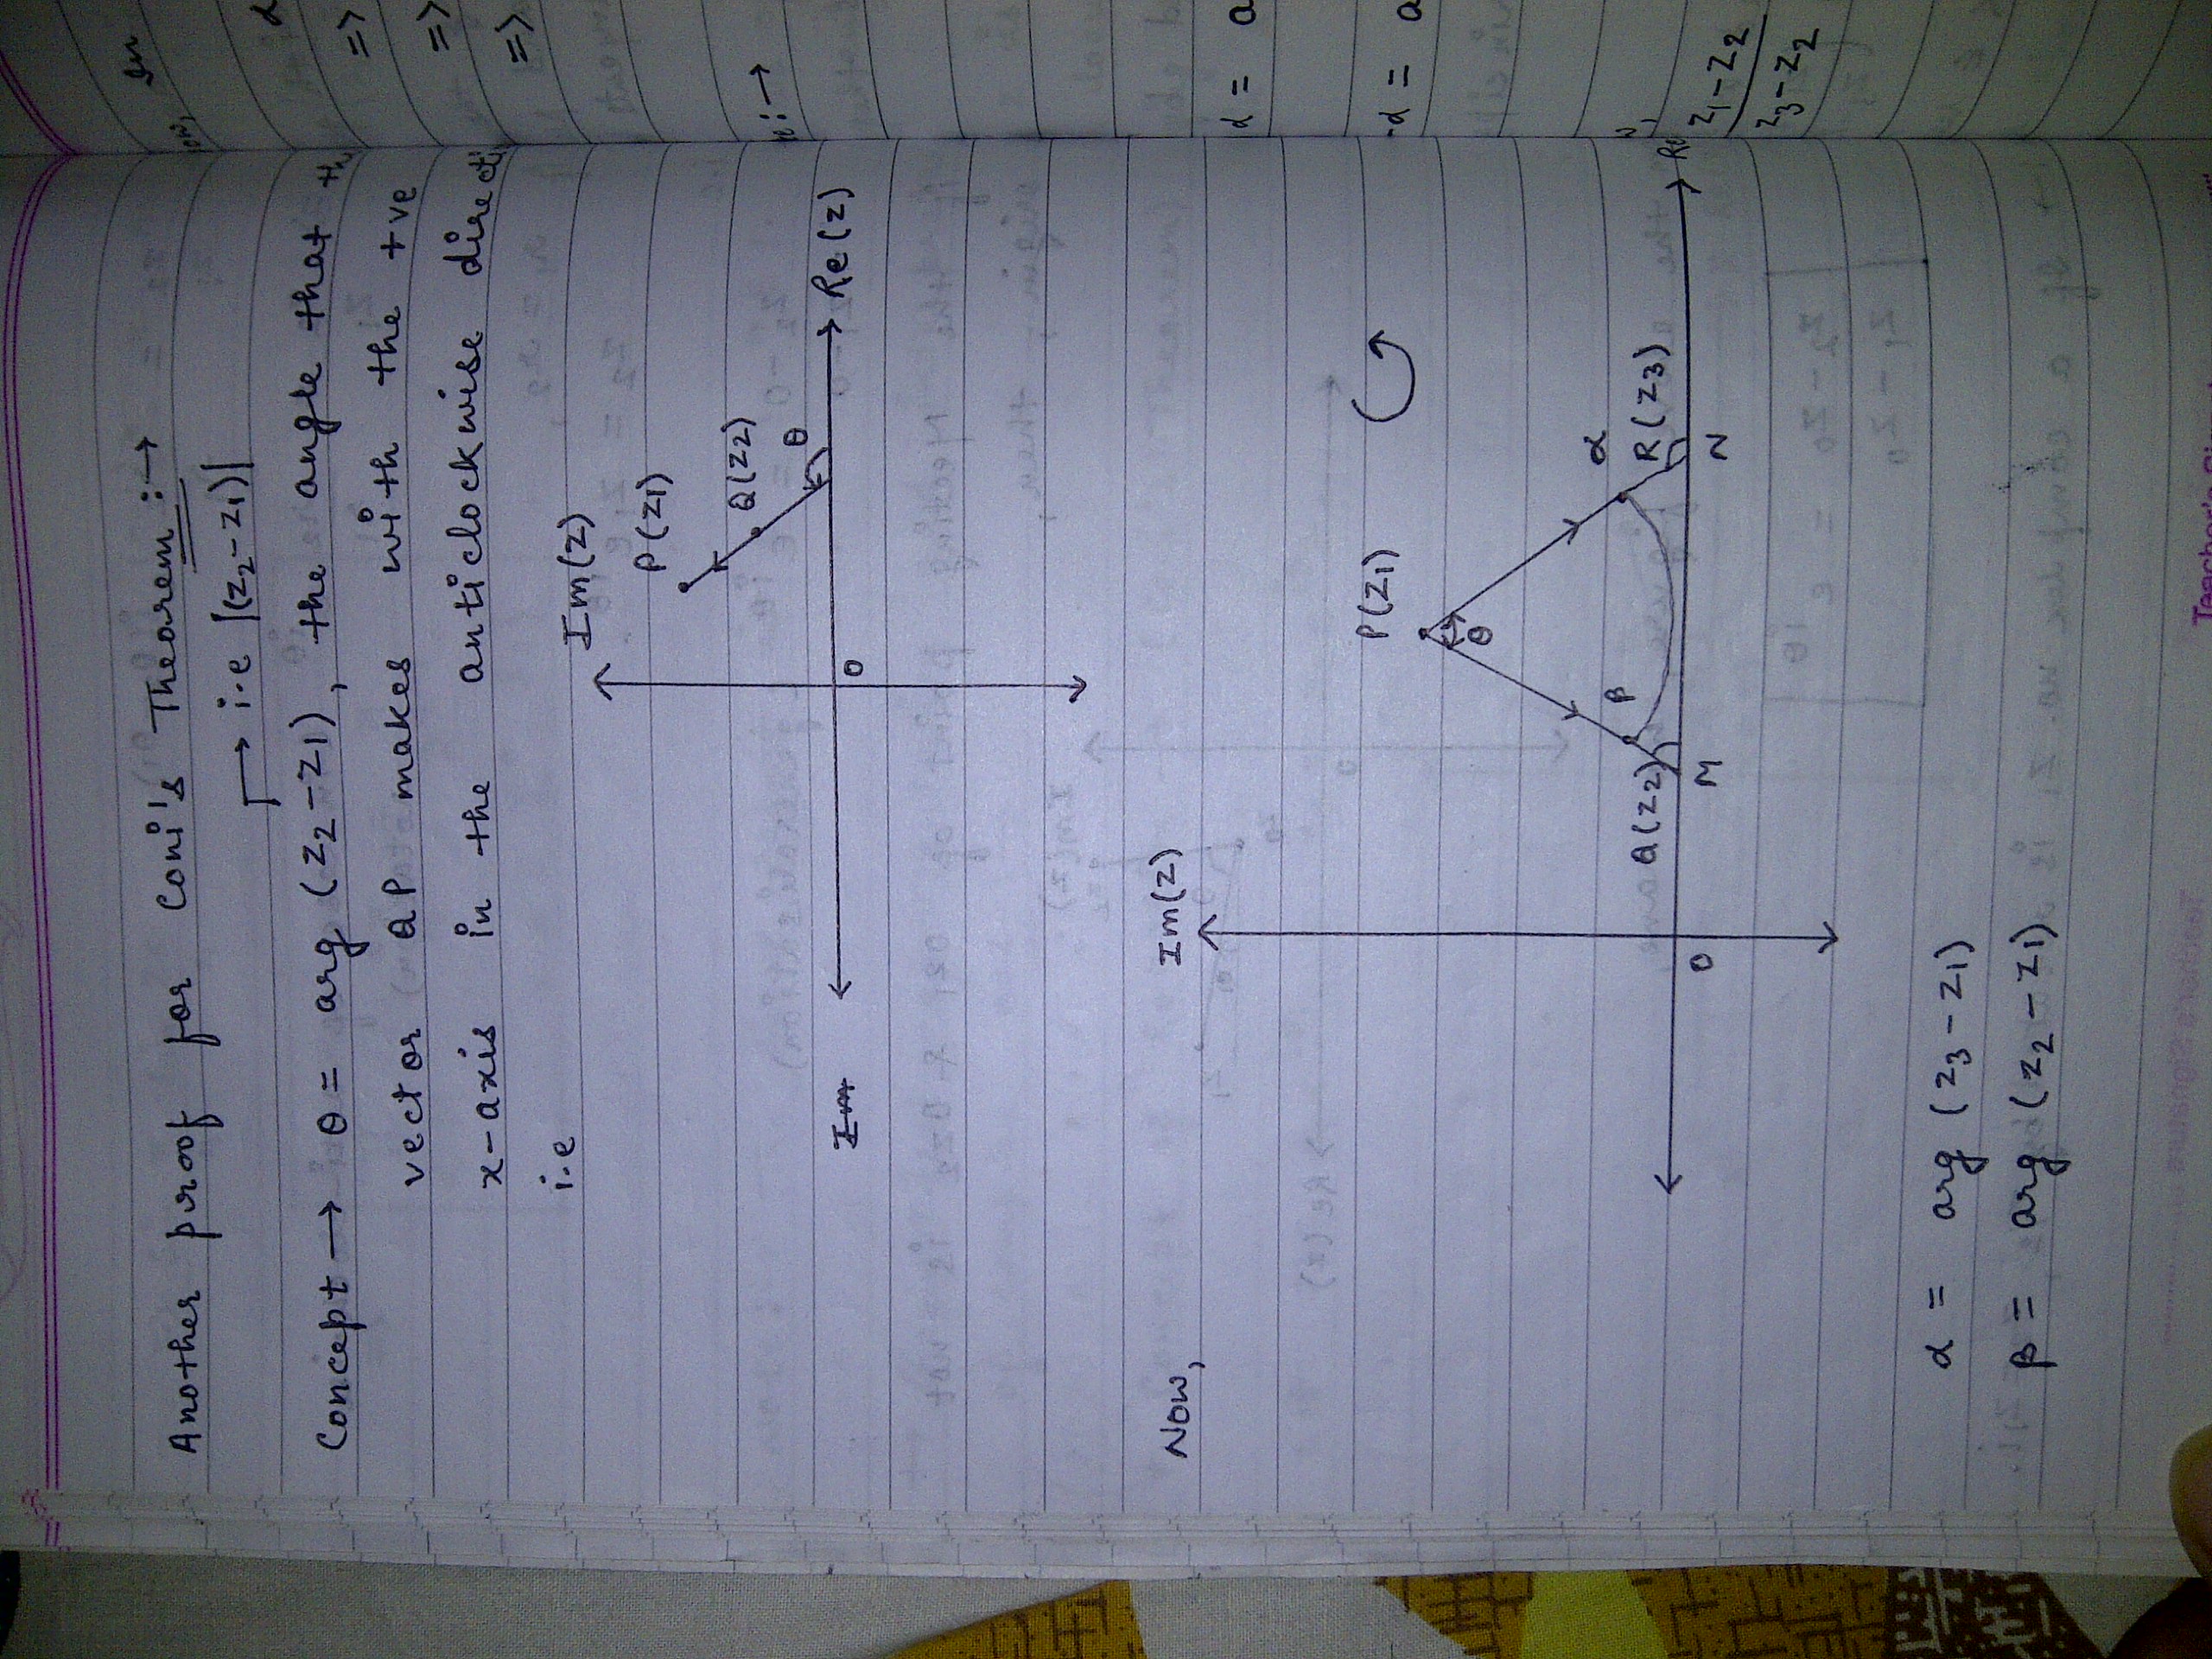 Another proof for Coni's Theorem :→
→ i.e |(z₂-z₁)|
Concept → θ = arg (z₂-z₁), the angle that
vector QP makes with the +ve
x-axis in the anticlockwise directi
i.e
Im(z)
P(z₁)
Q(z₂)
θ
Im
Re(z)
0
Now,
Im(z)
P(z₁)
θ
α
β
Q(z₂)
R(z₃)
Re
0
M
N
α = arg (z₃-z₁)
β = arg (z₂-z₁)
In
ow,
α
=>
=>
=>
e:→
α = a
-α = a
z₁-z₂
z₃-z₂